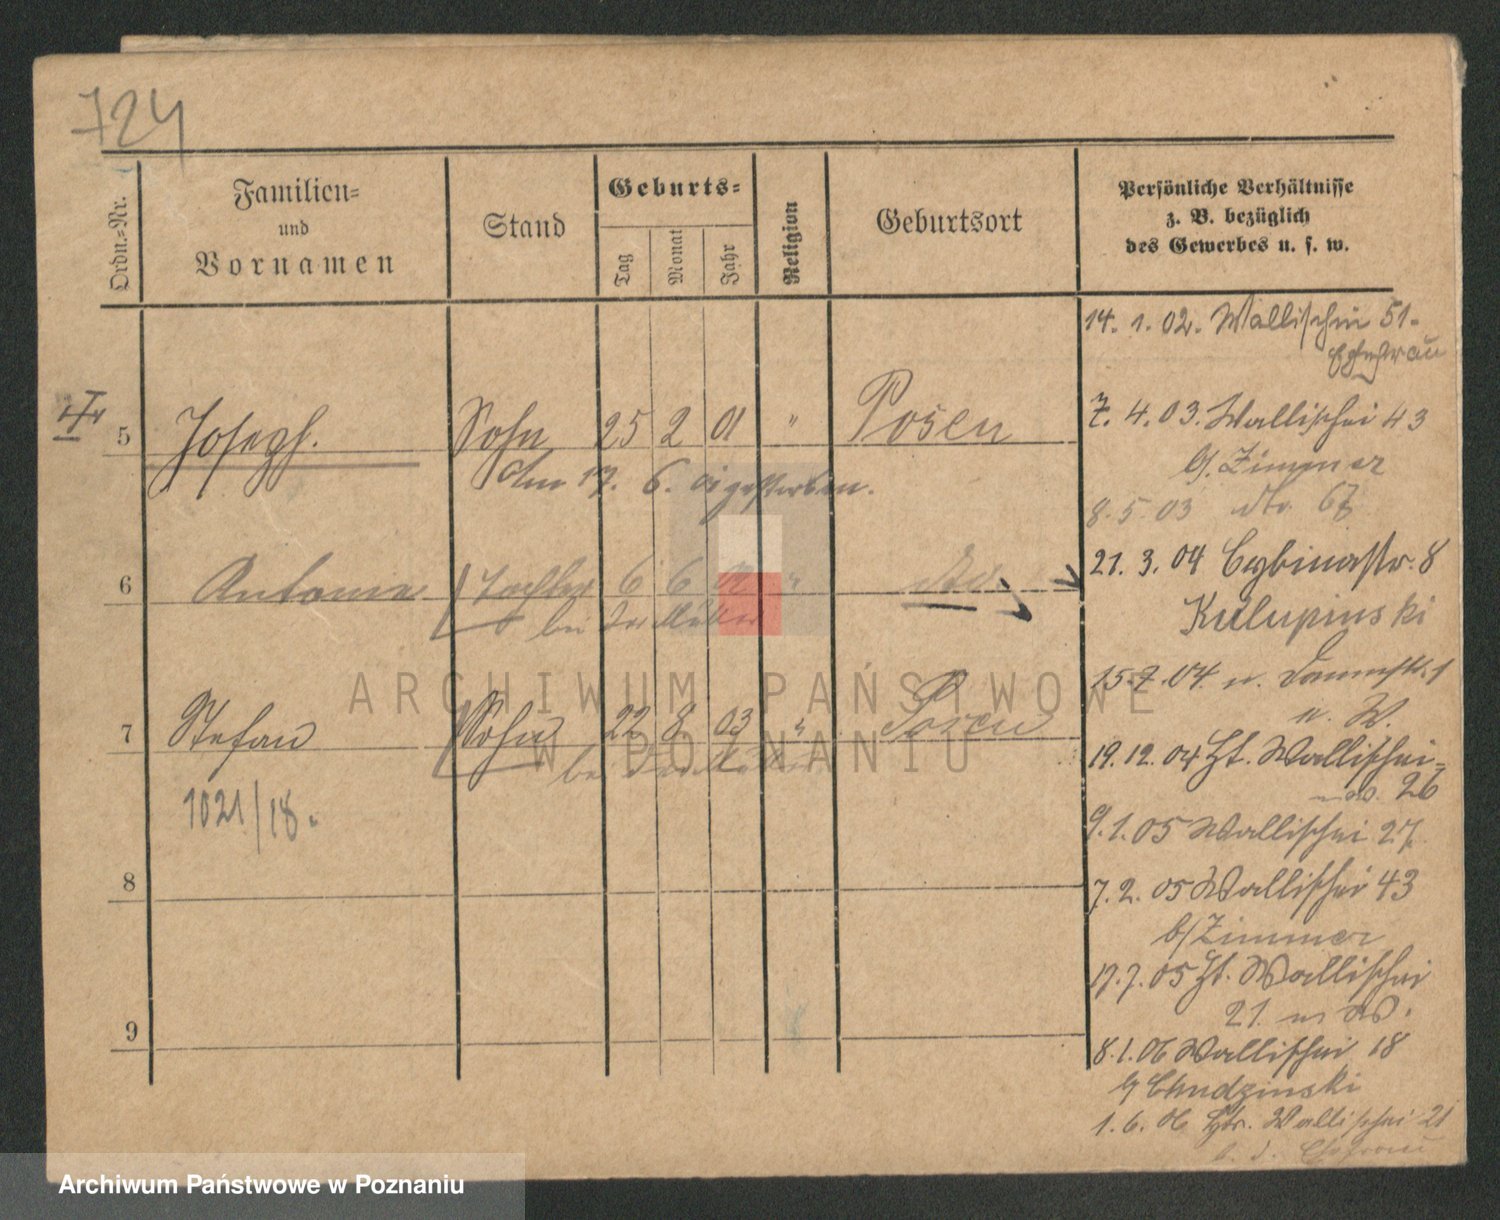 724
Ordn.-Nr.
Familien-
und
Vornamen
Stand
Geburts-
Tag
Monat
Jahr
Religion
Geburtsort
Persönliche Verhältnisse
z. B. bezüglich
des Gewerbes u. s. w.
14. 1. 02. Wallischei 51.
Ehefrau
5 Joseph. Sohn 25 2 01 " Posen
7. 4. 03. Wallischei 43
am 17. 6. 01 gestorben.
b/ Zimmer
8. 5. 03 dto. 67
6 Antonie Tochter 6 6 02 " dto.
21. 3. 04 Cybinastr. 8
bei der Mutter
Kulupinski
15. 7. 04. n. Dammstr. 1
7 Stefan Sohn 22 8 03 " Posen
n. W.
bei der Mutter
19. 12. 04 Zt. Wallischei-
26
1021/18.
9. 1. 05 Wallischei 27.
8
7. 2. 05 Wallischei 43
b/ Zimmer
17. 7. 05 Zt. Wallischei
21. m W.
9
8. 1. 06 Wallischei 18
b/ Chudzinski
1. 6. 06 Wallischei 21
b. d. Ehefrau
ARCHIWUM PAŃSTWOWE
W POZNANIU
Archiwum Państwowe w Poznaniu